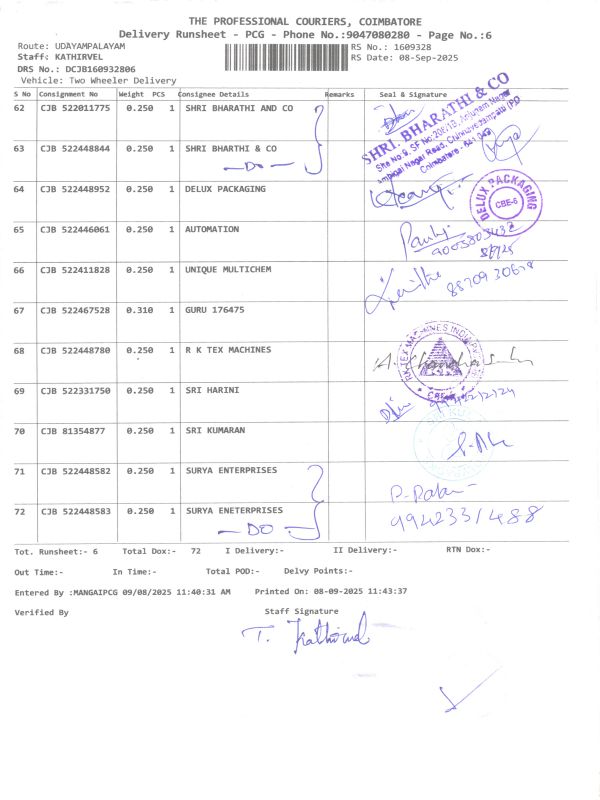 THE PROFESSIONAL COURIERS, COIMBATORE
Delivery Runsheet - PCG - Phone No.:9047080280 - Page No.:6
Route: UDAYAMPALAYAM RS No.: 1609328
Staff: KATHIRVEL RS Date: 08-Sep-2025
DRS No.: DCJB160932806
Vehicle: Two Wheeler Delivery
S No Consignment No Weight PCS Consignee Details Remarks Seal & Signature
62 CJB 522011775 0.250 1 SHRI BHARATHI AND CO
SHRI. BHARATHI & CO
63 CJB 522448844 0.250 1 SHRI BHARTHI & CO
Coimbatore
- Do -
64 CJB 522448952 0.250 1 DELUX PACKAGING
DELUX PACKAGING
CBE-6
65 CJB 522446061 0.250 1 AUTOMATION
66 CJB 522411828 0.250 1 UNIQUE MULTICHEM
67 CJB 522467528 0.310 1 GURU 176475
68 CJB 522448780 0.250 1 R K TEX MACHINES
69 CJB 522331750 0.250 1 SRI HARINI
70 CJB 81354877 0.250 1 SRI KUMARAN
71 CJB 522448582 0.250 1 SURYA ENTERPRISES
72 CJB 522448583 0.250 1 SURYA ENETERPRISES 9942331488
- DO -
Tot. Runsheet:- 6 Total Dox:- 72 I Delivery:- II Delivery:- RTN Dox:-
Out Time:- In Time:- Total POD:- Delvy Points:-
Entered By :MANGAIPCG 09/08/2025 11:40:31 AM Printed On: 08-09-2025 11:43:37
Verified By Staff Signature